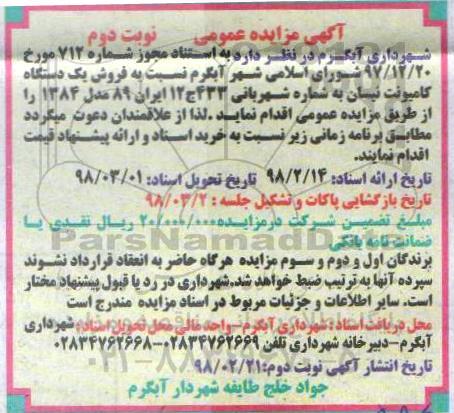 آگهی مزایده عمومی نوبت دوم
شهرداری آبگرم در نظر دارد به استناد مجوز شماره ۷۱۲ مورخ
۹۷/۱۲/۲۰ شورای اسلامی شهر آبگرم نسبت به فروش یک دستگاه
کامیونت نیسان به شماره شهربانی ۴۳۳ج۱۲ ایران ۸۹ مدل ۱۳۸۴ را
از طریق مزایده عمومی اقدام نماید. لذا از علاقمندان دعوت میگردد
مطابق برنامه زمانی زیر نسبت به خرید اسناد و ارائه پیشنهاد قیمت
اقدام نمایند.
تاریخ ارائه اسناد: ۹۸/۲/۱۴ تاریخ تحویل اسناد: ۹۸/۰۳/۰۱
تاریخ بازگشایی پاکات و تشکیل جلسه : ۹۸/۰۳/۲
مبلغ تضمین شرکت درمزایده ۲۰/۰۰۰/۰۰۰ ریال نقدی یا
ضمانت نامه بانکی
برندگان اول و دوم و سوم مزایده هرگاه حاضر به انعقاد قرارداد نشوند
سپرده آنها به ترتیب ضبط خواهد شد.شهرداری در رد یا قبول پیشنهاد مختار
است. سایر اطلاعات و جزئیات مربوط در اسناد مزایده مندرج است
محل دریافت اسناد : شهرداری آبگرم-واحد مالی محل تحویل اسناد: شهرداری
آبگرم-دبیرخانه شهرداری تلفن ۰۲۸۳۴۷۶۲۶۶۹-۰۲۸۳۴۷۶۲۶۶۸
تاریخ انتشار آگهی نوبت دوم:۹۸/۰۲/۲۱
جواد خلج طایفه شهردار آبگرم
ParsNamadData